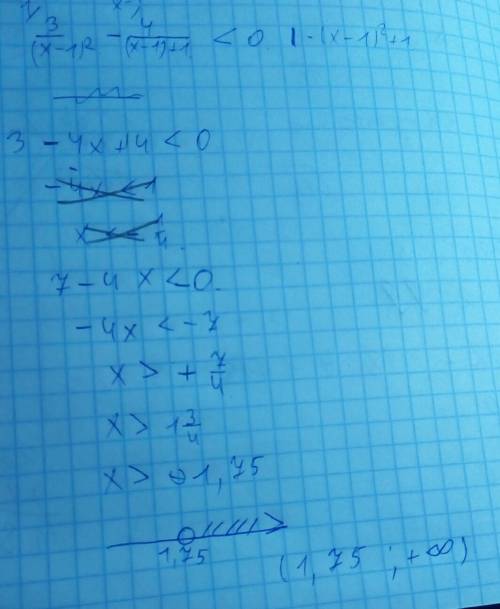 3/(x-1)² - 4/((x-1)+1) < 0 | · (x-1)²+1
3 - 4x + 4 < 0
7 - 4x < 0.
-4x < -7
x > + 7/4
x > 1 3/4
x > 1,75
1,75
(1,75 ; +∞)